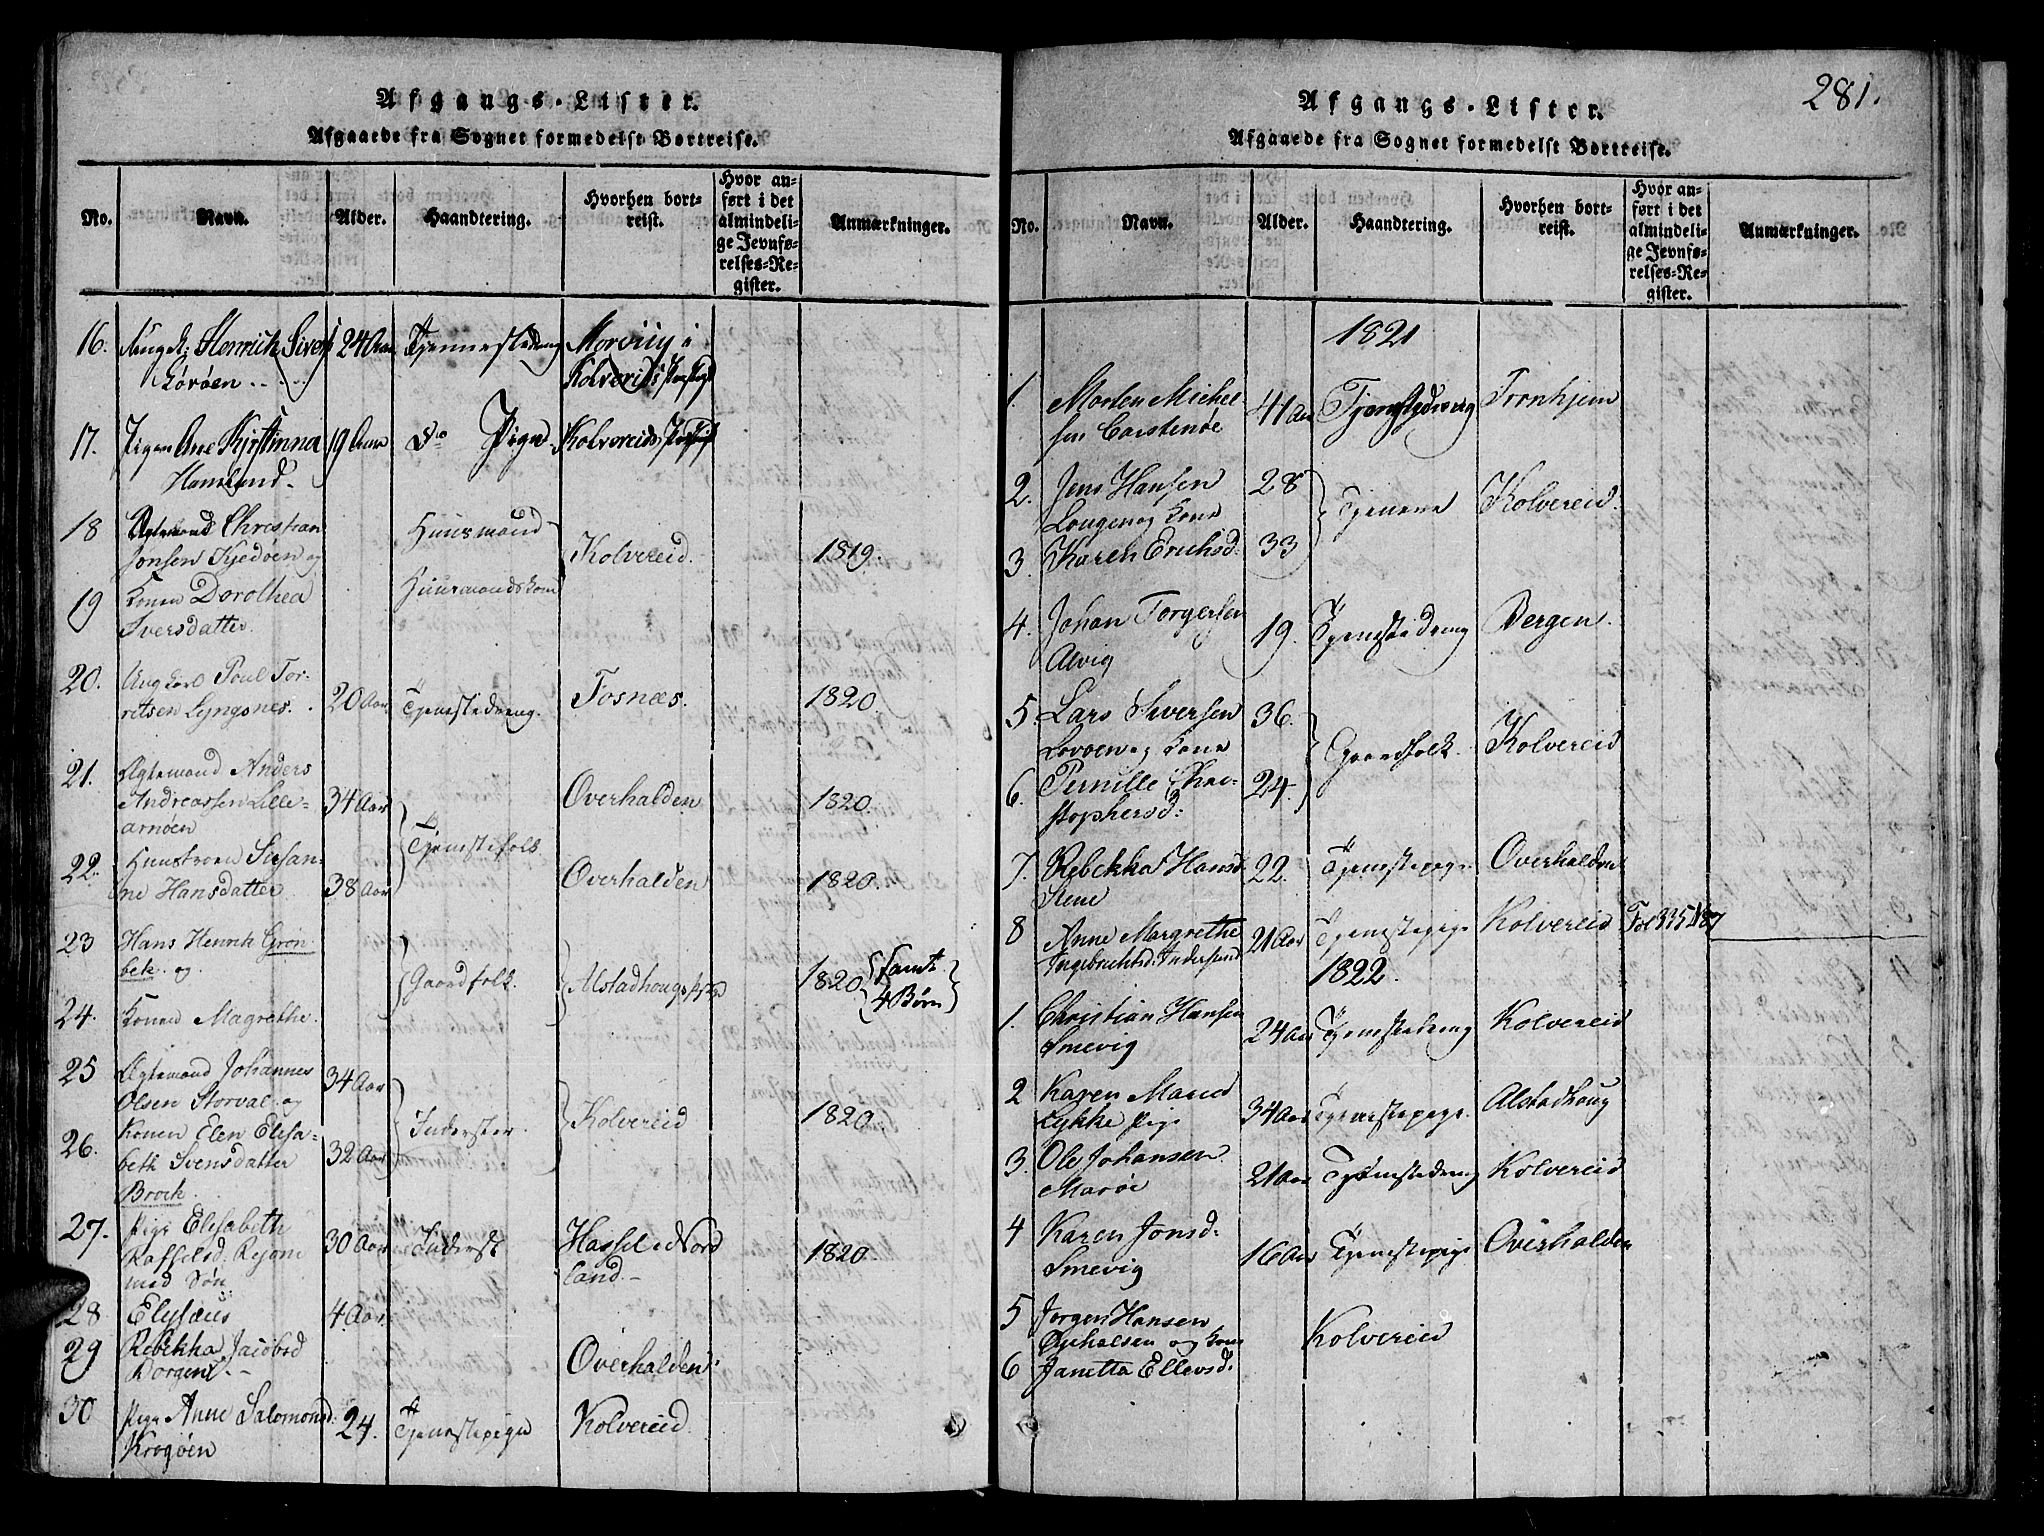 Afgangs-Lister.
Afgaaede fra Sognet formedelst Bortreise.
No. Navn. Alder. Haandtering. Hvorhen bortreist. Hvor anført i det almindelige Jevnførelses-Register. Anmærkninger.
16. Ung K: Henrich Sivers 24 Aar Tjenestedreng Morviig i
Lørøen Kolvereids Præstegd
17. Pigen Ane Kirstinna 19 Aar Do Pige Kolvereids
Hamland.
18 Ægtemand Christian Huusmand
Jonsen Kjedøen og Kolvereid. 1819.
19 Konen Dorothea Huusmandskone
Iversdatter.
20. Ung Karl Poul Tor-
ritsen Lyngsnes. 20 Aar Tjenestedreng. Fosnæs. 1820.
21. Ægtemand Anders
Andreassen Lille- 34 Aar Overhalden 1820.
arnøen Tjenestefolk
22. Huustroen Susan-
ne Hansdatter 38 Aar Overhalden 1820.
23 Hans Henrik Grøn-
bek. og Gaardfolk. Alstadhougs 1820 Samt
4 Børn
24. Konen Magrethe.
25 Ægtemand Johannes 34 Aar
Olsen Storval. og Inderster. Kolvereid 1820.
26. Konen Elen Elisa-
beth Svensdatter 32 Aar
Brock.
27. Pige Elisabeth
Raffelsd. 30 Aar Inderst Hassel i Nord 1820.
med Søn land.
28 Elisæus 4 Aar
29 Rebekka Overhalden
Borgen
30 Pige Anne Salomonsd: 24. Tjenestepige Kolvereid.
Krogøen
281.
Afgangs-Lister.
Afgaaede fra Sognet formedelst Bortreise.
No. Navn. Alder. Haandtering. Hvorhen bortreist. Hvor anført i det almindelige Jevnførelses-Register. Anmærkninger.
1821
1. Morten Michel
sen Carstenøe 41 Aar Tjenestedreng Tronhjem
2. Jens Hansen 28
Lougen og Kone Tjenere Kolvereid.
3. Karen Erichsd: 33
4. Johan Torgersen 19. Tjenestedreng Bergen.
Alvig
5. Lars Siversen 36.
Lovøen og Kone Gaardfolk. Kolvereid
6. Pernille Chri- 24.
stophersd:
7. Rebekka Hansd 22. Tjenestepige Overhalden
Stene
8 Anne Margrethe 21 Aar Tjenestepige Kolvereid Fol 335 №87
Ingebrechtsd: Andersund
1822.
1. Christian Hansen 24 Aar Tjenestedreng Kolvereid
Smevig
2 Karen Maria 34 Aar Tjenestepige. Alstadhoug
Lykke Pige
3. Ole Johansen 21 Aar Tjenestedreng Kolvereid
Marøe
4 Karen Jonsd: 16 Aar Tjenestepige Overhalden
Smevig
5 Jørgen Hansen
Øjehalsen og Kone Kolvereid
6 Janetta Ellevsd: